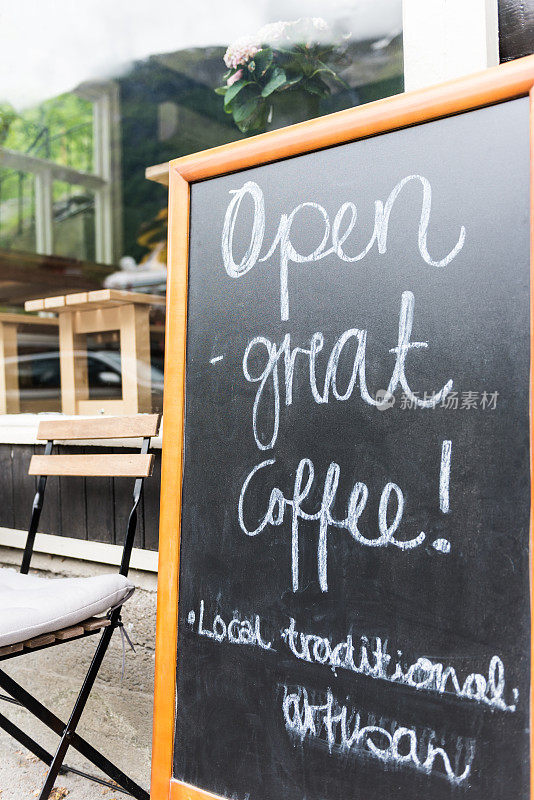 Open
- great
Coffee!
• Local traditional
artisan
新浪视觉中国